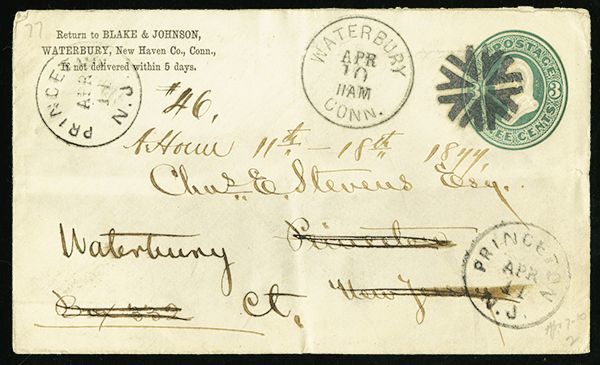 77
Return to BLAKE & JOHNSON,
WATERBURY, New Haven Co., Conn.,
If not delivered within 5 days.
PRINCETON
APR
N.J.
WATERBURY
APR
10
11AM
CONN.
POSTAGE
3
THREE CENTS
#46.
11th - 18th 1877.
Chas. E. Stevens Esq.
Waterbury Princeton
Box 332 Ct. New Jersey
PRINCETON
APR
11
N.J.